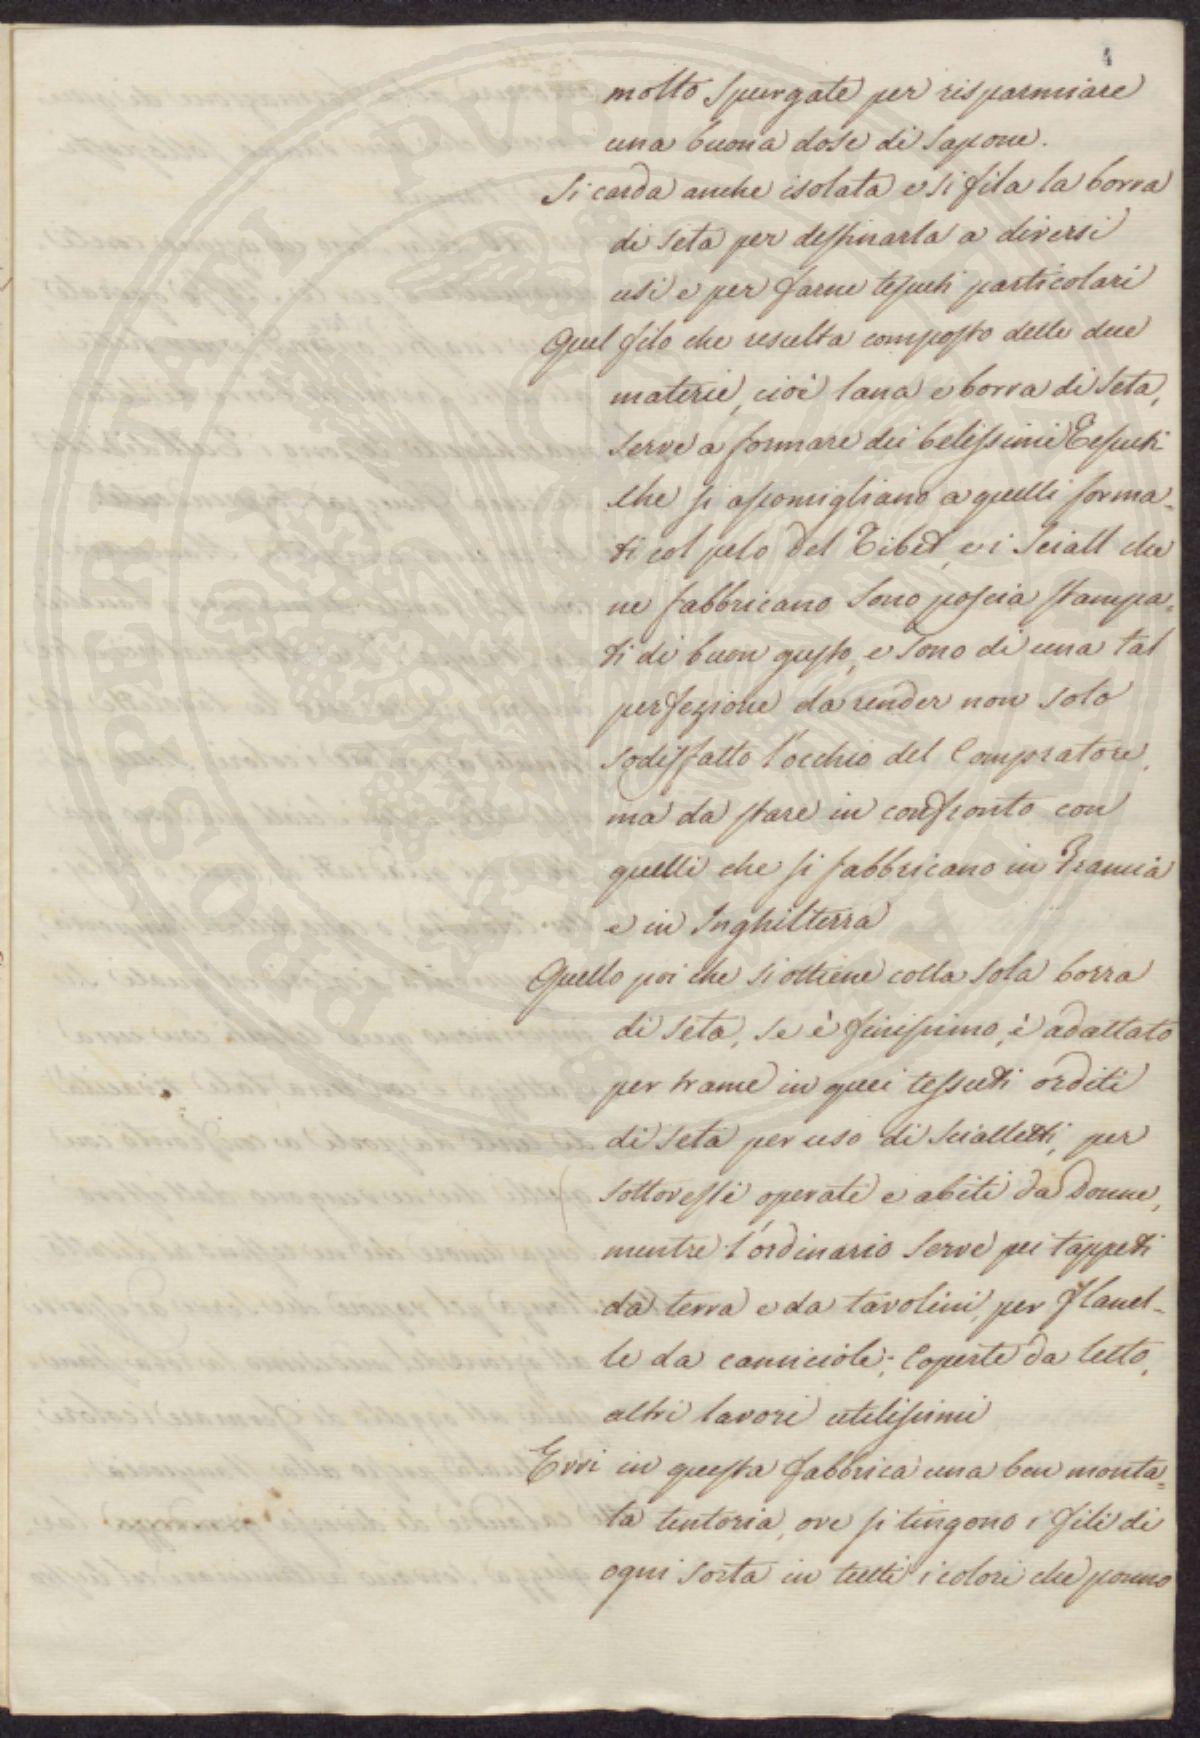 molto spurgate per risparmiare
una buona dose di sapone.
Si carda anche isolata e si fila la borra
di seta per destinarla a diversi
usi e per farne tessuti particolari
Quel filo che resulta composto delle due
materie, cioè lana e borra di seta,
serve a formare dei belissimi Tessuti
che si assomigliano a quelli forma=
ti col pelo del Tibet, e i Sciall che
ne fabbricano sono poscia stampa=
ti di buon gusto, e sono di una tal
perfezione da render non solo
sodisfatto l'occhio del Compratore,
ma da stare in confronto con
quelli che si fabbricano in Francia
e in Inghilterra
Quello poi che si ottiene colla sola borra
di seta, se è finissimo, è adattato
per trame in quei tessuti orditi
di seta per uso di Scialletti, per
sottovesti operate e abiti da donne,
mentre l'ordinario serve pei tappeti
da terra e da tavolini, per flanel=
le da camiciole; Coperte da letto,
altri lavori utilissimi
Evvi in questa fabbrica una ben monta=
ta tentoria, ove si tingono i fili di
ogni sorta in tutti i colori che ponno
PROSPERITATI PVBLICAE AVGENDAE